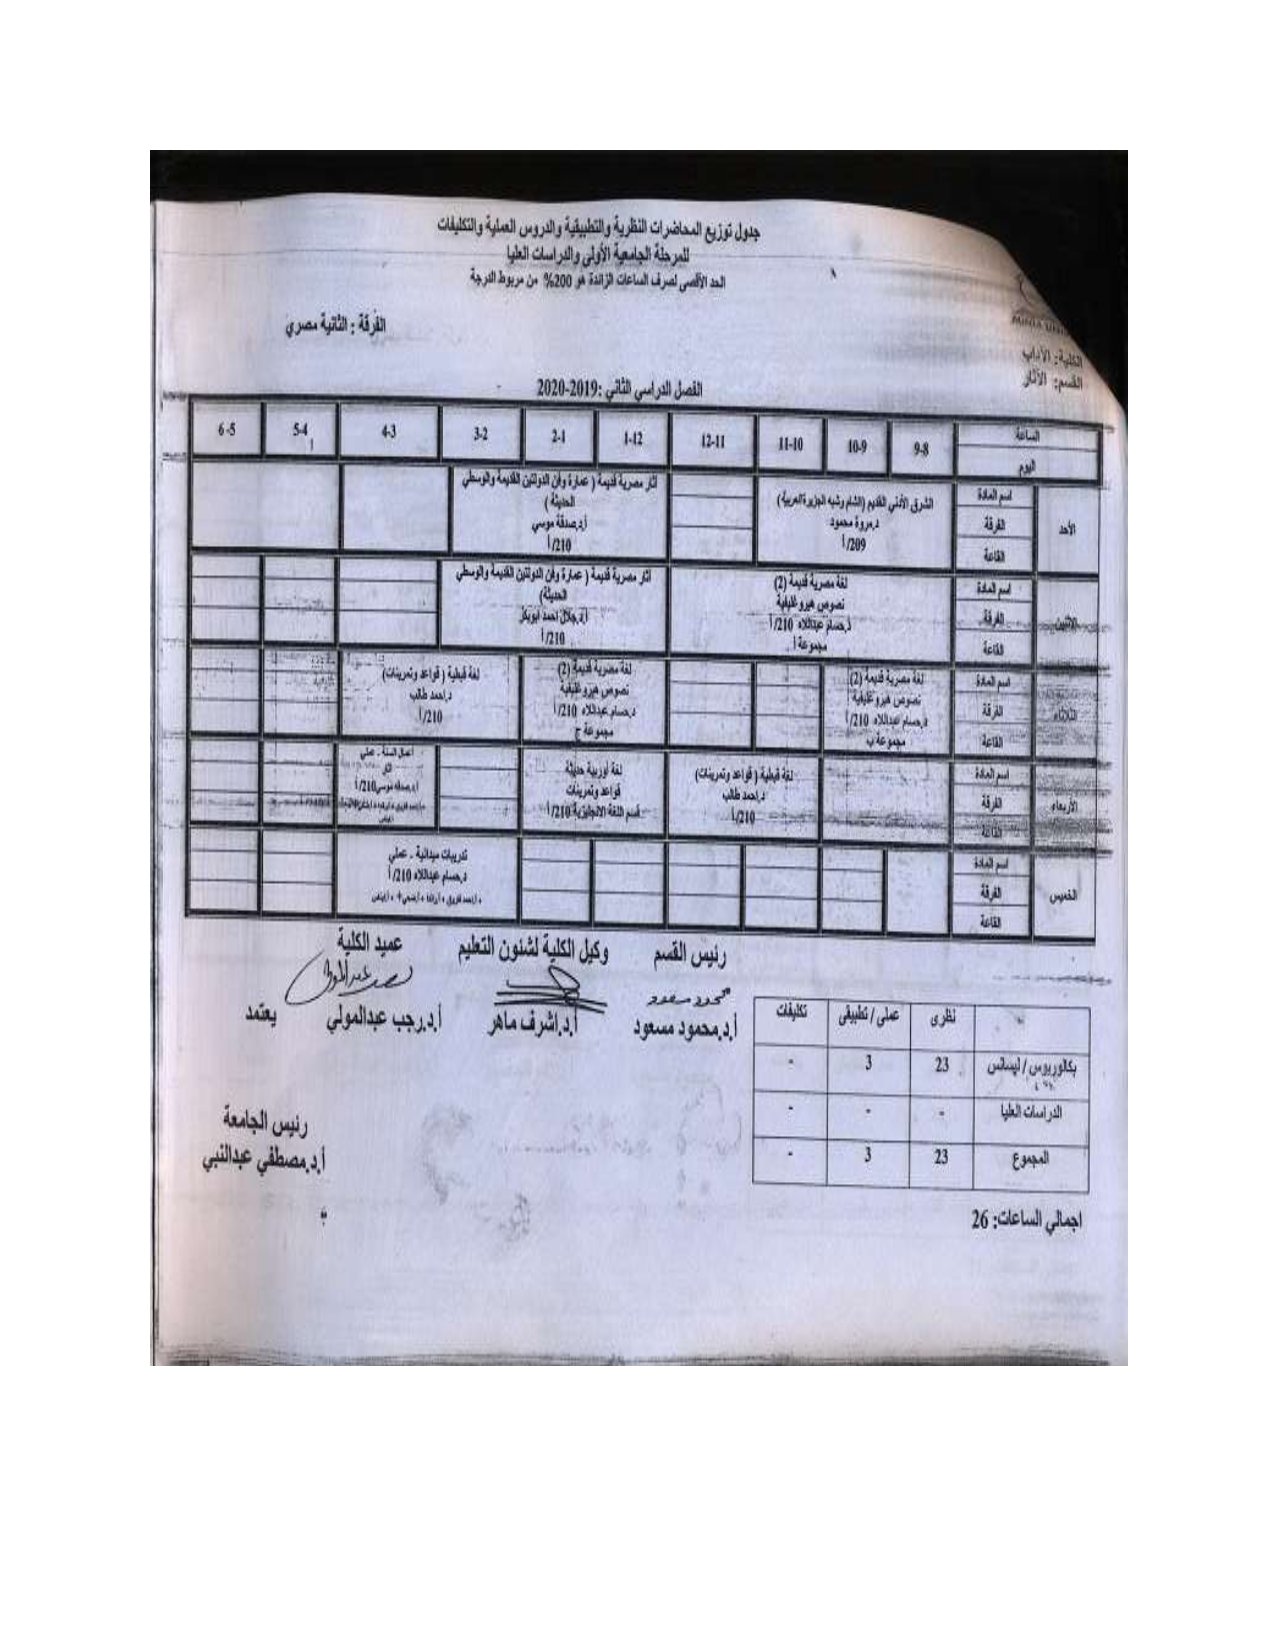 جدول توزيع المحاضرات النظرية والتطبيقية والدروس العملية والتكليفات
للمرحلة الجامعية الأولى والدراسات العليا
الحد الأقصى لصرف الساعات الزائدة هو 200% من مربوط الدرجة
الفرقة : الثانية مصري
الكلية: الآداب
القسم: الآثار
الفصل الدراسي الثاني :2019-2020
الساعة 9-8 10-9 11-10 12-11 1-12 2-1 3-2 4-3 5-4 6-5
اليوم
الأحد
اسم المادة
الفرقة
القاعة
الشرق الأدني القديم (الشام وشبه الجزيرة العربية)
د.مروة محمود
209/أ
آثار مصرية قديمة ( عمارة وفن الدولتين القديمة والوسطي
الحديثة )
أ.د.صدقة موسي
210/أ
الاثنين
اسم المادة
الفرقة
القاعة
لغة مصرية قديمة (2)
نصوص هيروغليفية
د.حسام عبداللاه 210/أ
مجموعة أ
آثار مصرية قديمة ( عمارة وفن الدولتين القديمة والوسطي
الحديثة)
أ.د.جلال احمد ابوبكر
210/أ
الثلاثاء
اسم المادة
الفرقة
القاعة
لغة مصرية قديمة (2)
نصوص هيروغليفية
د.حسام عبداللاه 210/أ
مجموعة ب
لغة مصرية قديمة (2)
نصوص هيروغليفية
د.حسام عبداللاه 210/أ
مجموعة ج
لغة قبطية ( قواعد وتمرينات)
د.احمد طالب
210/أ
الأربعاء
اسم المادة
الفرقة
القاعة
لغة قبطية ( قواعد وتمرينات)
د.احمد طالب
210/أ
لغة أوربية حديثة
قواعد وتمرينات
قسم اللغة الانجليزية 210/أ
أعمال السنة - عملي
آثار
أ.د.صدقه موسي 210/أ
الخميس
اسم المادة
الفرقة
القاعة
تدريبات ميدانية - عملي
د.حسام عبداللاه 210/أ
رئيس القسم وكيل الكلية لشئون التعليم عميد الكلية
أ.د.محمود مسعود أ.د.اشرف ماهر أ.د.رجب عبدالمولي يعتمد
رئيس الجامعة
أ.د.مصطفي عبدالنبي
نظرى عملى / تطبيقى تكليفات
بكالوريوس / ليسانس 23 3 -
الدراسات العليا - - -
المجموع 23 3 -
اجمالي الساعات: 26